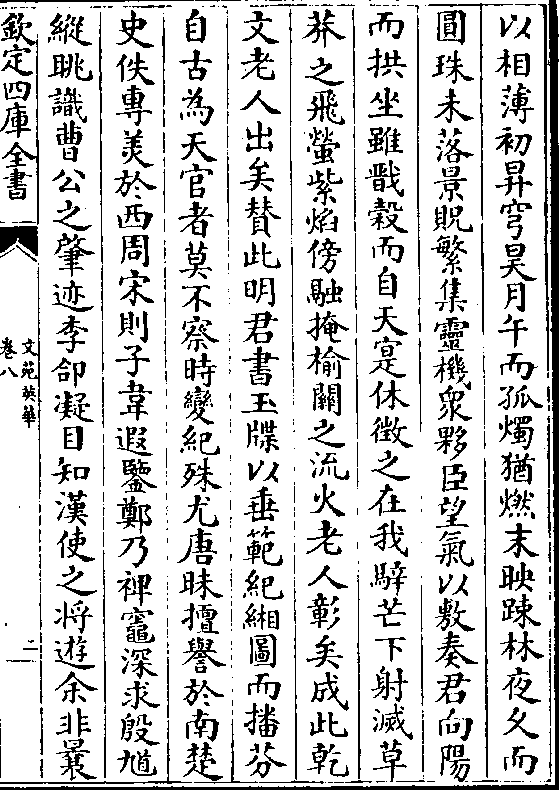 以相薄初昇穹昊月午而孤燭猶燃末映踈林夜久而
圓珠未落景貺繁集靈機衆夥臣望氣以敷奏君向陽
而拱坐雖戬榖而自天寔休徴之在我騂芒下射滅草
莽之飛螢紫焰傍融掩榆關之流火老人彰矣成此乾
文老人出矣賛此明君書玉牒以垂範紀緗圖而播芬
自古為天官者莫不察時變紀殊尤唐昧擅譽於南楚
史佚專羙於西周宋則子韋遐鑒鄭乃裨竈深求殷馗
縱眺識曹公之肇迹李郃凝目知漢使之将遊余非曩
欽定四庫全書
文苑英華
卷八
二